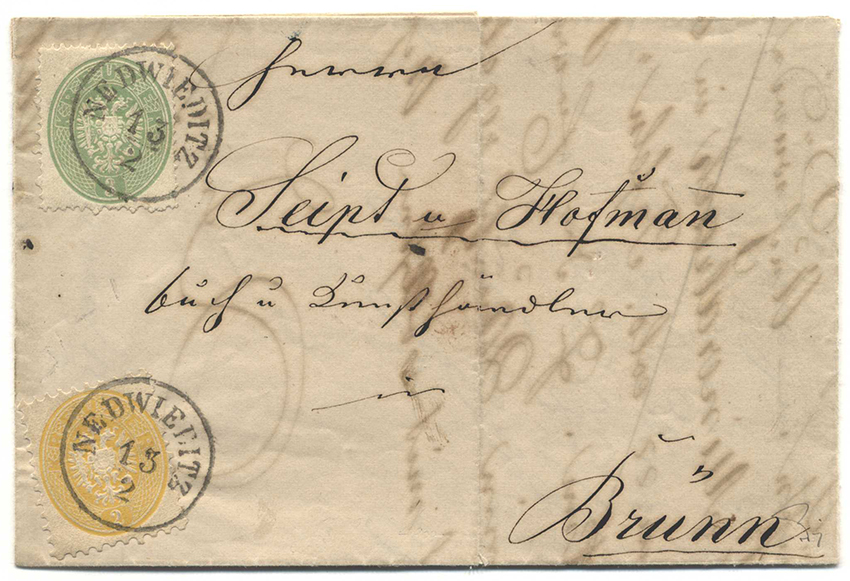 NEDWIEDITZ
13
2
Herrn
Seipt u Hofman̄
buch u Kunsthändler
in
Brünn
NEDWIEDITZ
13
2